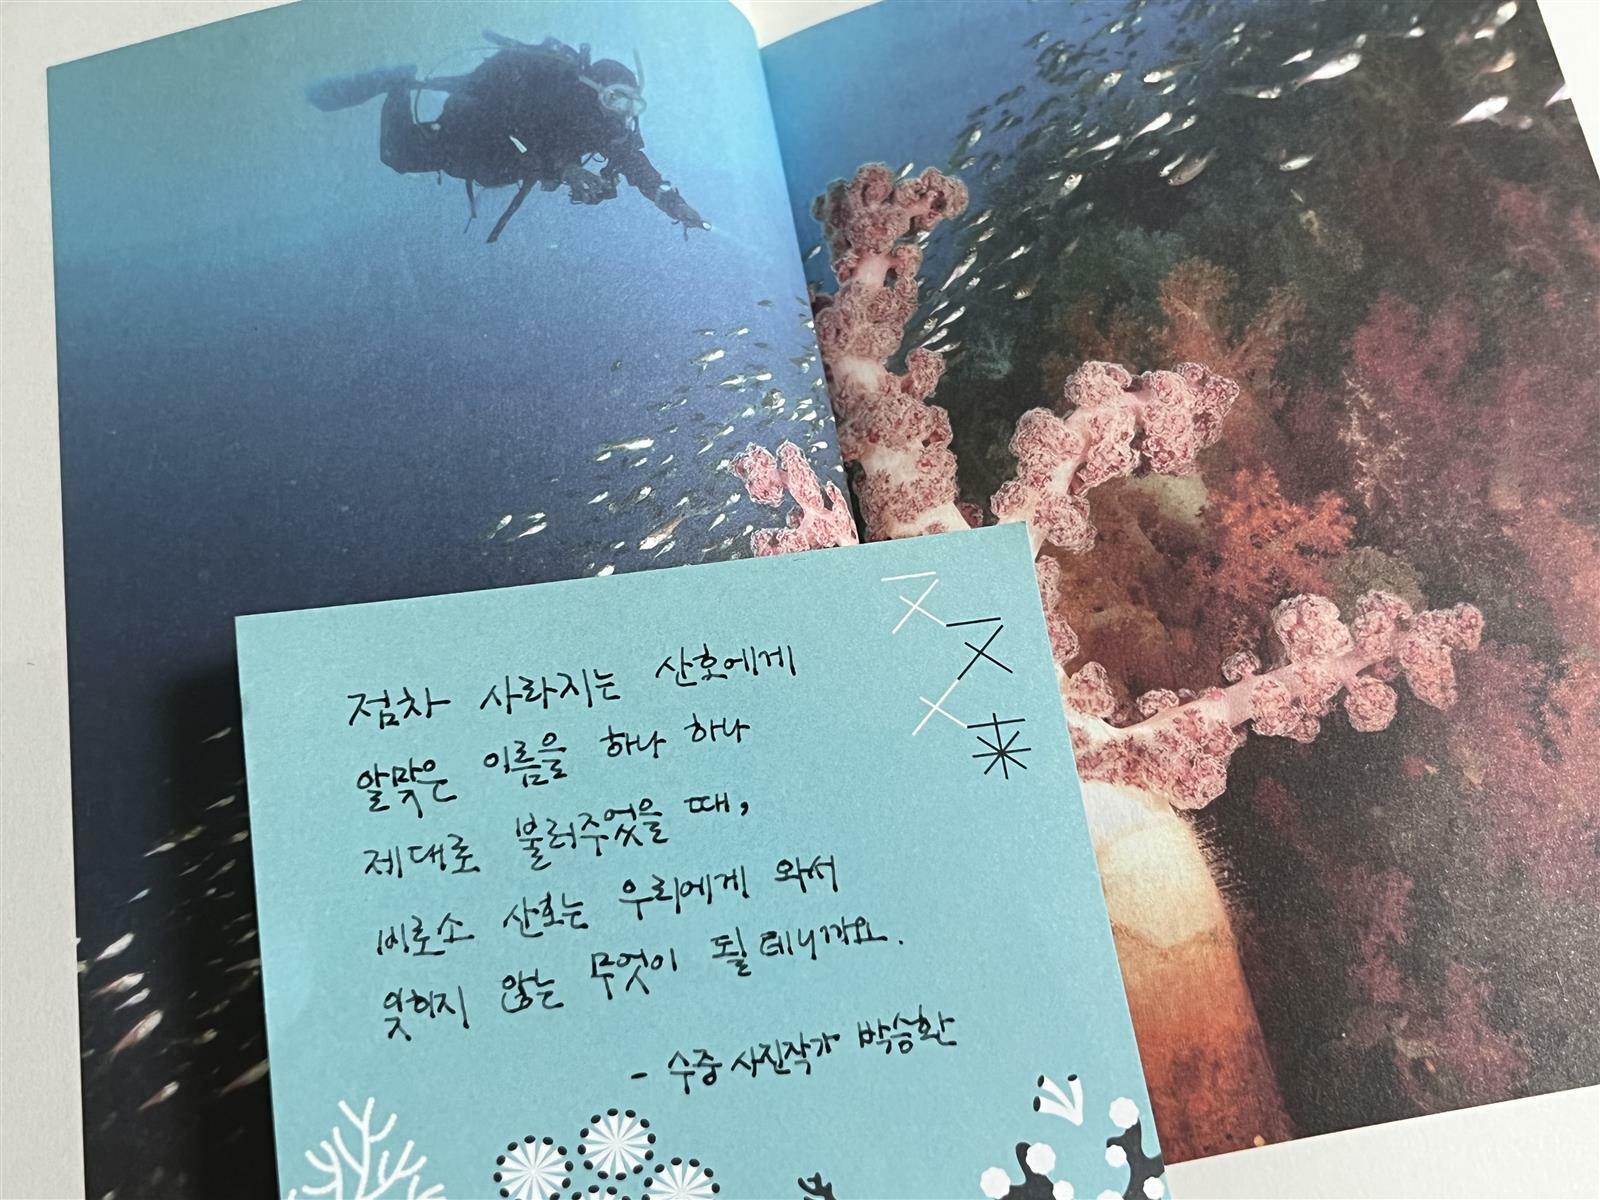 점차 사라지는 산호에게
알맞은 이름을 하나 하나
제대로 불러주었을 때,
비로소 산호는 우리에게 와서
잊히지 않는 무엇이 될테니까요.
- 수중사진작가 박승환